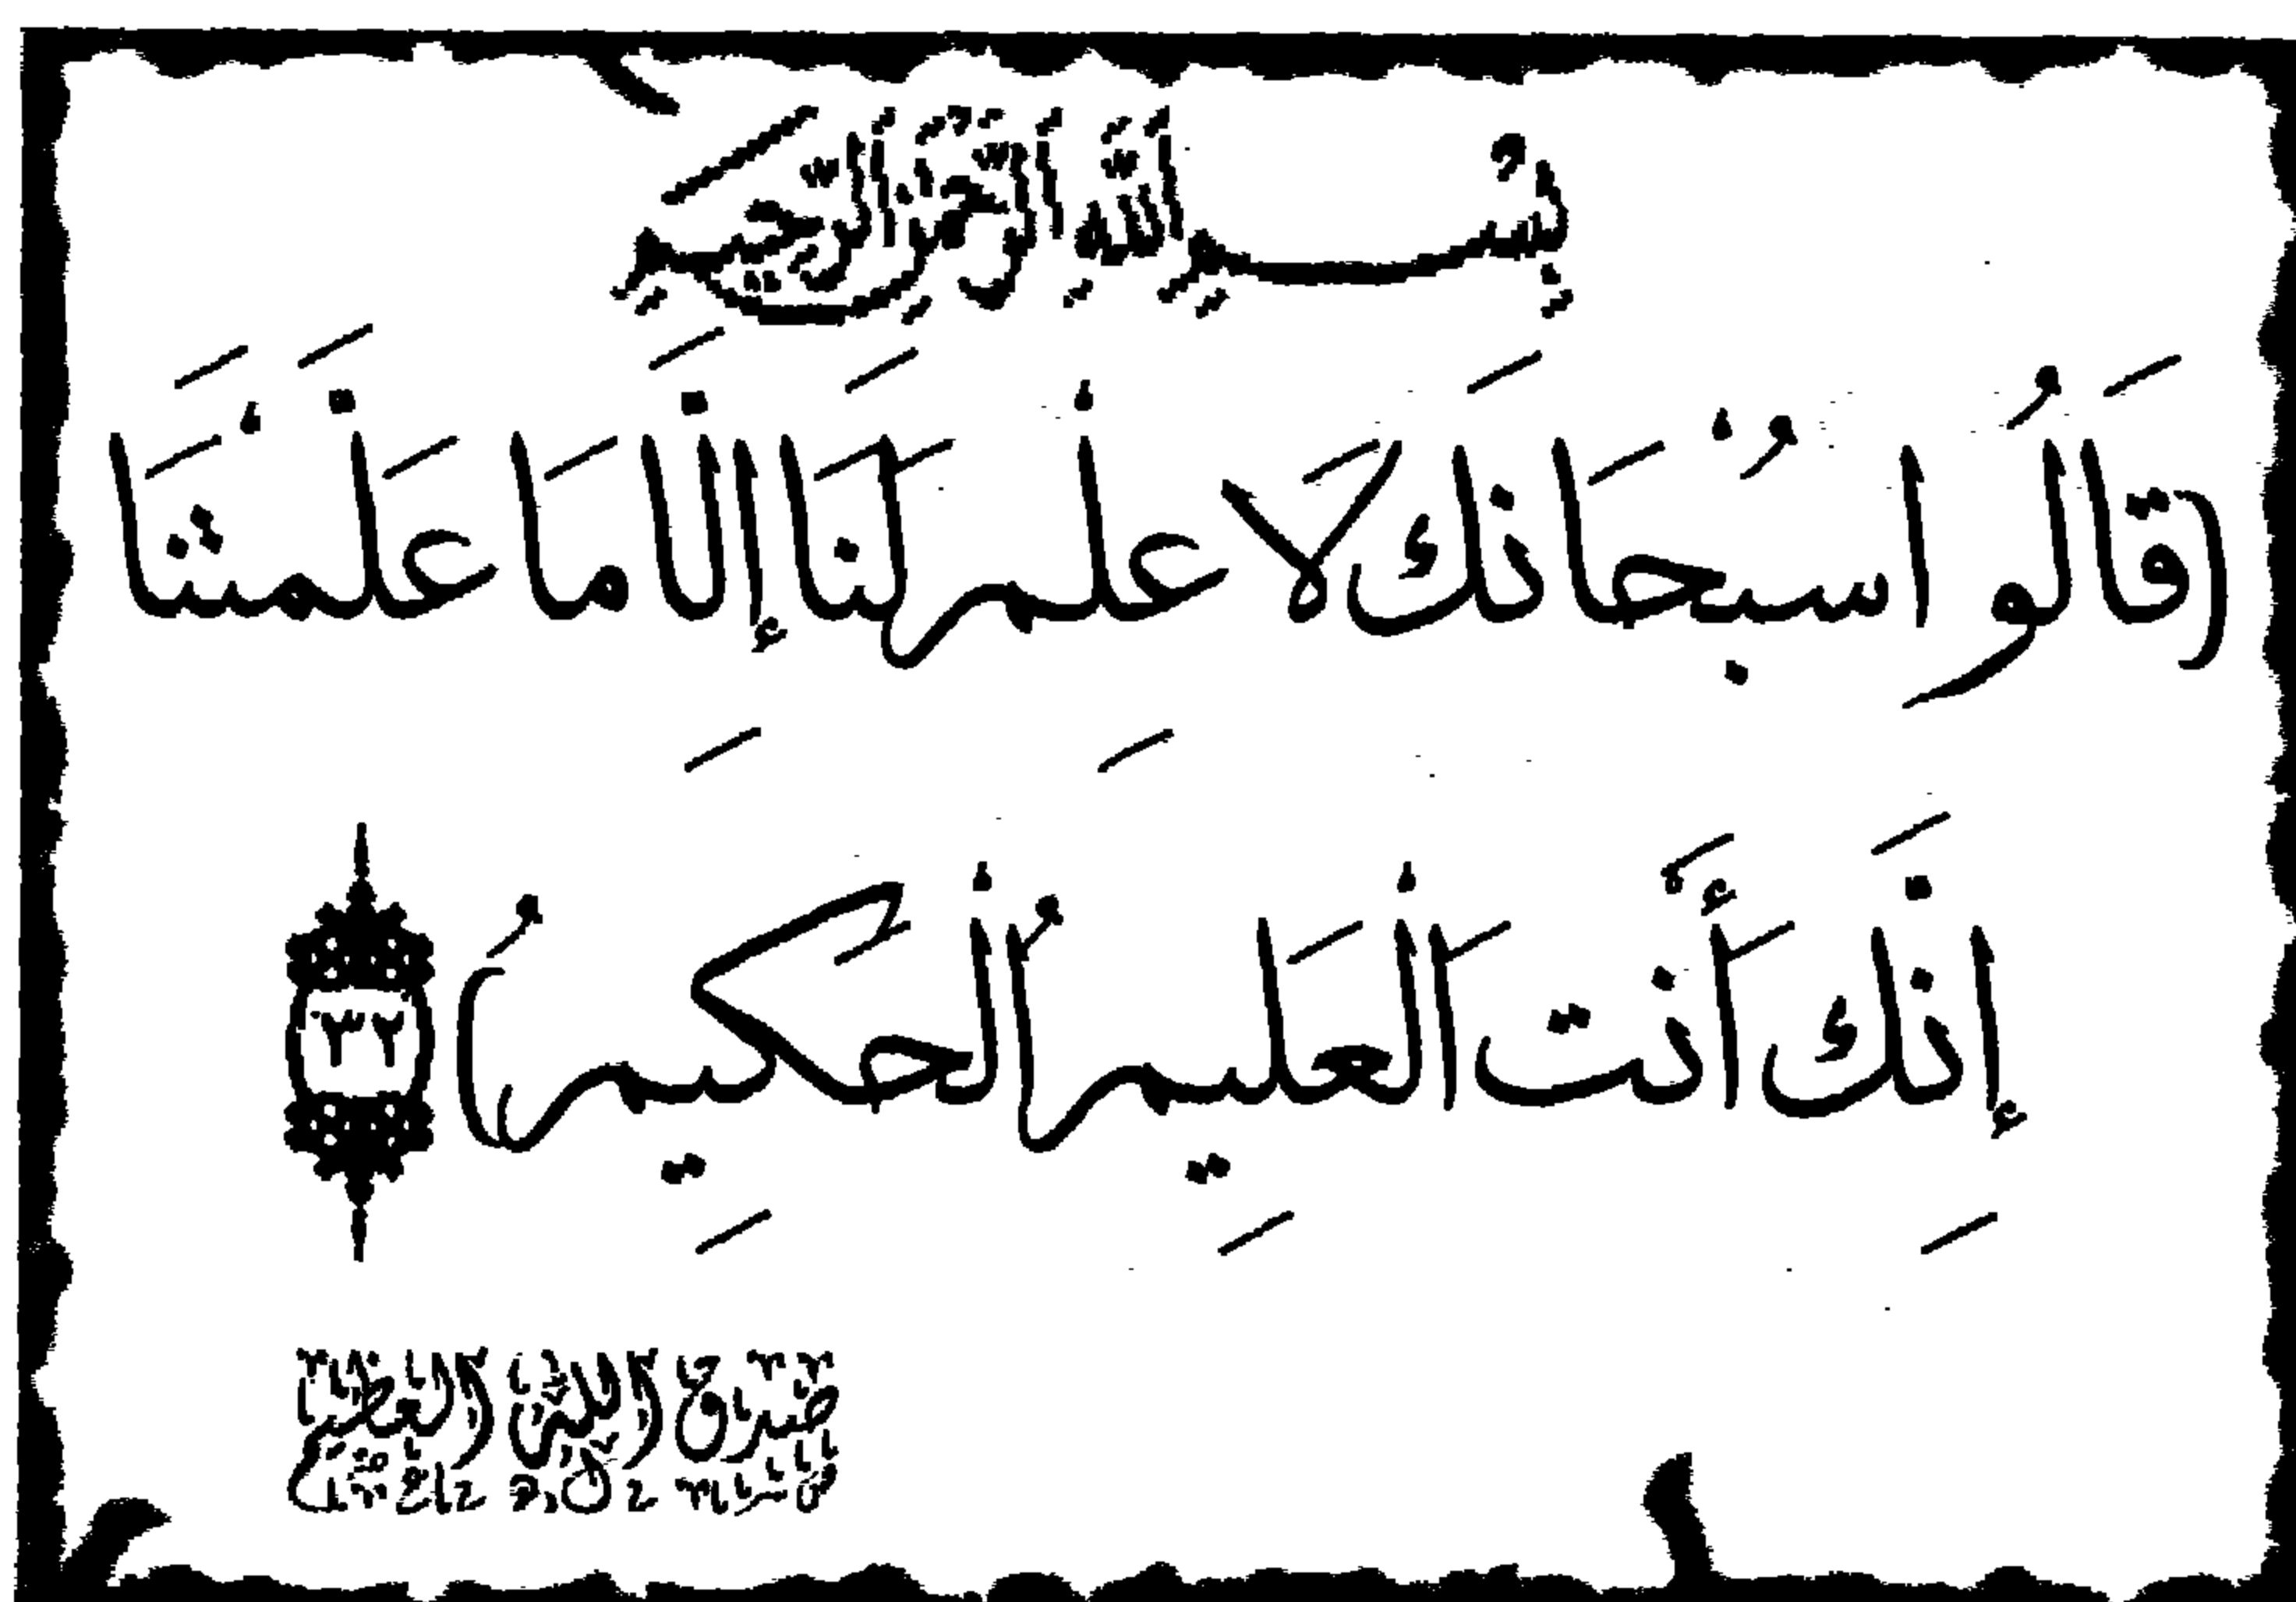 بِسْمِ اللَّهِ الرَّحْمَٰنِ الرَّحِيمِ
(قَالُوا سُبْحَانَكَ لَا عِلْمَ لَنَا إِلَّا مَا عَلَّمْتَنَا
إِنَّكَ أَنْتَ الْعَلِيمُ الْحَكِيمُ) ٣٢
صدق الله العظيم